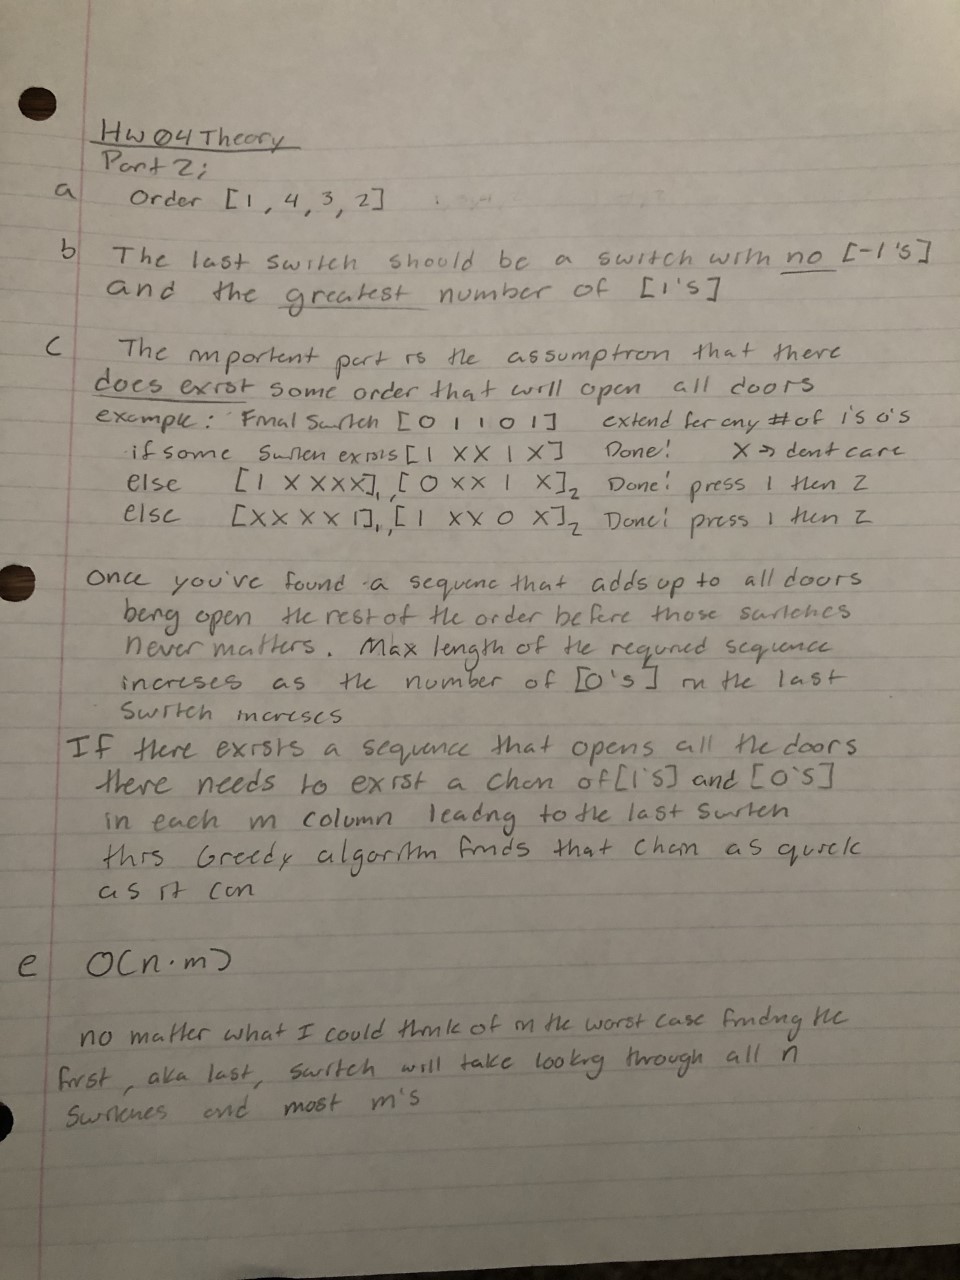 HW 04 Theory
Part 2;
a Order [1, 4, 3, 2]
b The last switch should be a switch with no [-1's]
and the greatest number of [1's]
c The importent part is the assumption that there
does exist some order that will open all doors
example: Final Switch [0 1 1 0 1] extend for any # of 1's 0's
if some Switch exists [1 X X 1 X] Done! X → dont care
else [1 X X X X]₁, [0 X X 1 X]₂ Done! press 1 then 2
else [X X X X 1]₁, [1 X X 0 X]₂ Done! press 1 then 2
Once you've found a sequenc that adds up to all doors
being open the rest of the order before those switches
never matters. Max length of the required sequence
increses as the number of [0's] in the last
Switch increses
If there exists a sequence that opens all the doors
there needs to exist a chain of [1's] and [0's]
in each m column leading to the last Switch
this Greedy algorithm finds that chain as quick
as it can
e O(n·m)
no matter what I could think of in the worst case finding the
first, aka last, switch will take looking through all n
Switches and most m's